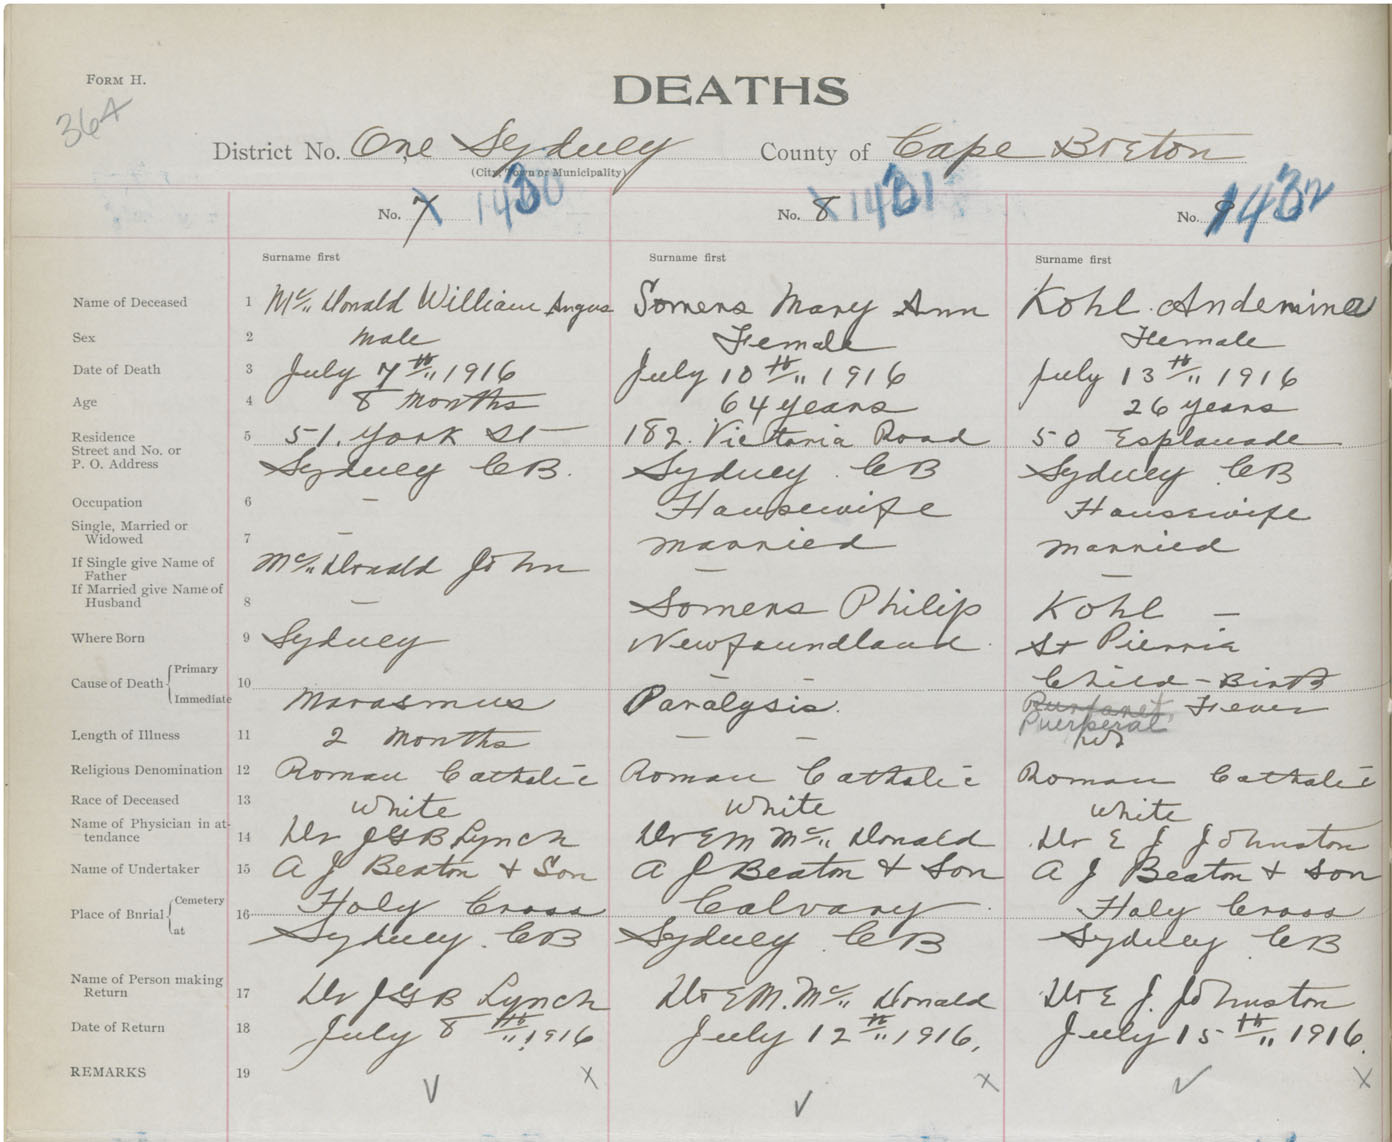 FORM H.
DEATHS
364
District No. One Sydney County of Cape Breton
(City, Town or Municipality)
No. 7 1430 No. 8 1431 No. 9 1432
Surname first Surname first Surname first
Name of Deceased 1 Mc Donald William Angus Somers Mary Ann Kohl Andemina
Sex 2 Male Female Female
Date of Death 3 July 7th 1916 July 10th 1916 July 13th 1916
Age 4 8 Months 64 years 26 years
Residence 5 51. York St 182. Victoria Road 50 Esplanade
Street and No. or
P. O. Address Sydney CB. Sydney CB Sydney CB
Occupation 6 — Housewife Housewife
Single, Married or
Widowed 7 — Married Married
If Single give Name of
Father Mc Donald John — —
If Married give Name of
Husband 8 — Somers Philip Kohl —
Where Born 9 Sydney Newfoundland. St Pierrie
Cause of Death Primary 10 — — Child-Birth
Immediate Marasmus Paralysis. Fever
Puerperal
Length of Illness 11 2 Months — —
Religious Denomination 12 Roman Catholic Roman Catholic Roman Catholic
Race of Deceased 13 White White White
Name of Physician in at-
tendance 14 Dr JGB Lynch Dr EM Mc Donald Dr E J Johnston
Name of Undertaker 15 A J Beaton + Son A J Beaton + Son A J Beaton + Son
Place of Burial Cemetery 16 Holy Cross Calvary Holy Cross
at Sydney. CB Sydney. CB Sydney CB
Name of Person making
Return 17 Dr JGB Lynch Dr EM. Mc Donald Dr E J. Johnston
Date of Return 18 July 8th 1916 July 12th 1916, July 15th 1916.
REMARKS 19